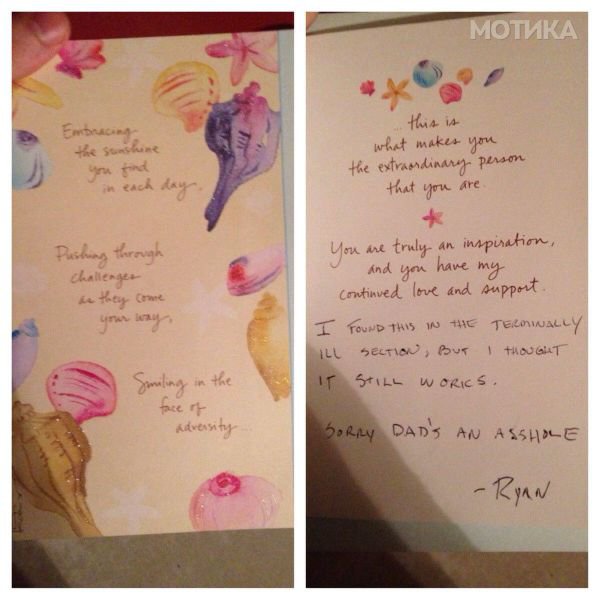 Embracing
the sunshine
you find
in each day,
Pushing through
challenges
as they come
your way,
Smiling in the
face of
adversity...
МОТИКА
... this is
what makes you
the extraordinary person
that you are.
You are truly an inspiration,
and you have my
continued love and support.
I FOUND THIS IN THE TERMINALLY
ILL SECTION, BUT I THOUGHT
IT STILL WORKS.
SORRY DAD'S AN ASSHOLE
- RYAN